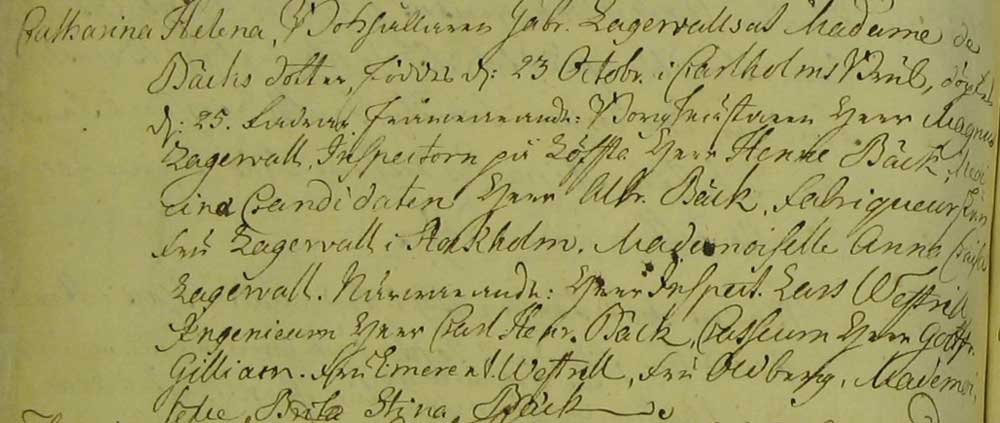 Catharina Helena, Bokhållaren Gabr. Lagervalls at Madame de
Bäcks dotter, föddes d: 23 Octobr. i Carlholms Bruk, döptes
d: 25. Fadrar, frånvarande: Borgmästaren Herr Magnus
Lagervall, Inspectorn på Löfsta Herr Henric Bäck, Medi
cinæ Candidaten Herr Abr. Bäck, Fabriqueur
Fru Lagervall i Stockholm. Mademoiselle Anna Cajsa
Lagervall. Närvarande: Herr Inspect. Lars Westrell
Ingenieurn Herr Carl Henr. Bäck, Casseurn Herr Gottfr.
Gilliam. Fru Emerent. Westrell, Fru Oldberg, Mademoi
selle Brita Stina Bäck